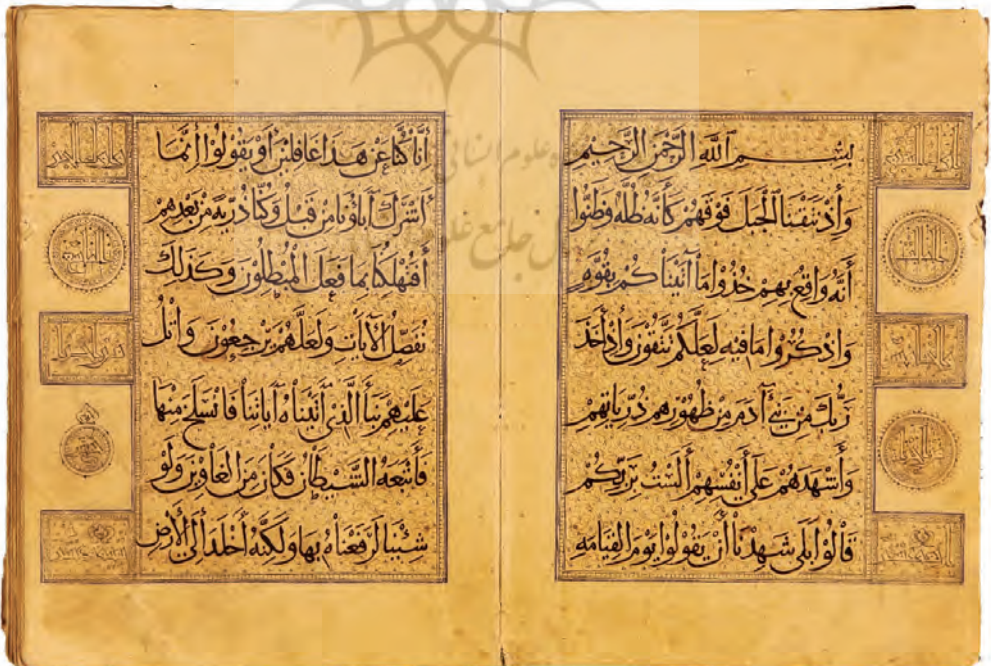 بسم الله الرحمن الرحيم
وَإِذْ نَتَقْنَا الْجَبَلَ فَوْقَهُمْ كَأَنَّهُ ظُلَّةٌ وَظَنُّوا
أَنَّهُ وَاقِعٌ بِهِمْ خُذُوا مَا آتَيْنَاكُمْ بِقُوَّةٍ
وَاذْكُرُوا مَا فِيهِ لَعَلَّكُمْ تَتَّقُونَ وَإِذْ أَخَذَ
رَبُّكَ مِنْ بَنِي آدَمَ مِنْ ظُهُورِهِمْ ذُرِّيَّاتِهِمْ
وَأَشْهَدَهُمْ عَلَى أَنْفُسِهِمْ أَلَسْتُ بِرَبِّكُمْ
قَالُوا بَلَى شَهِدْنَا أَنْ يَقُولُوا يَوْمَ الْقِيَامَةِ
إِنَّا كُنَّا عَنْ هَذَا غَافِلِينَ أَوْ يَقُولُوا إِنَّمَا
أَشْرَكَ آبَاؤُنَا مِنْ قَبْلُ وَكُنَّا ذُرِّيَّةً مِنْ بَعْدِهِمْ
أَفَتُهْلِكُنَا بِمَا فَعَلَ الْمُبْطِلُونَ وَكَذَلِكَ
نُفَصِّلُ الْآيَاتِ وَلَعَلَّهُمْ يَرْجِعُونَ وَاتْلُ
عَلَيْهِمْ نَبَأَ الَّذِي آتَيْنَاهُ آيَاتِنَا فَانْسَلَخَ مِنْهَا
فَأَتْبَعَهُ الشَّيْطَانُ فَكَانَ مِنَ الْغَاوِينَ وَلَوْ
شِئْنَا لَرَفَعْنَاهُ بِهَا وَلَكِنَّهُ أَخْلَدَ إِلَى الْأَرْضِ